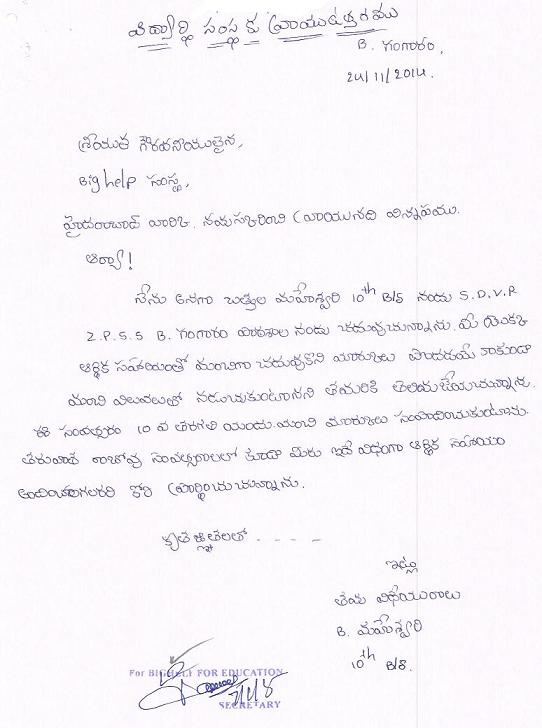 విద్యార్థి సంస్థకు వ్రాయుఉత్తరము
B. గంగారం,
24/11/2014.
శ్రీయుత గౌరవనీయులైన,
Big help సంస్థ,
హైదరాబాద్ వారికి. నమస్కరించి వ్రాయునది విన్నపము.
ఆర్యా!
నేను అనగా బత్తుల మహేశ్వరి 10th B/S నందు S.D.V.R
Z.P.S.S B. గంగారం పాఠశాల నందు చదువుచున్నాను. మీ యొక్క
ఆర్థిక సహాయంతో మంచిగా చదువుకొని మార్కులు పొందడమే కాకుండా
మంచి విలువలతో నడుచుకుంటానని తమరికి తెలియజేయుచున్నాను.
ఈ సంవత్సరం 10 వ తరగతి యందు మంచి మార్కులు సంపాదించుకుంటాను.
తరువాత రాబోవు సంవత్సరాలలో కూడా మీరు ఇదే విధంగా ఆర్థిక సహాయం
అందించగలరని కోరి ప్రార్థించుచున్నాను.
కృతజ్ఞతలతో - - - -
ఇట్లు
తమ విధేయురాలు
B. మహేశ్వరి
10th B/S.
For BIGHELP FOR EDUCATION
SECRETARY